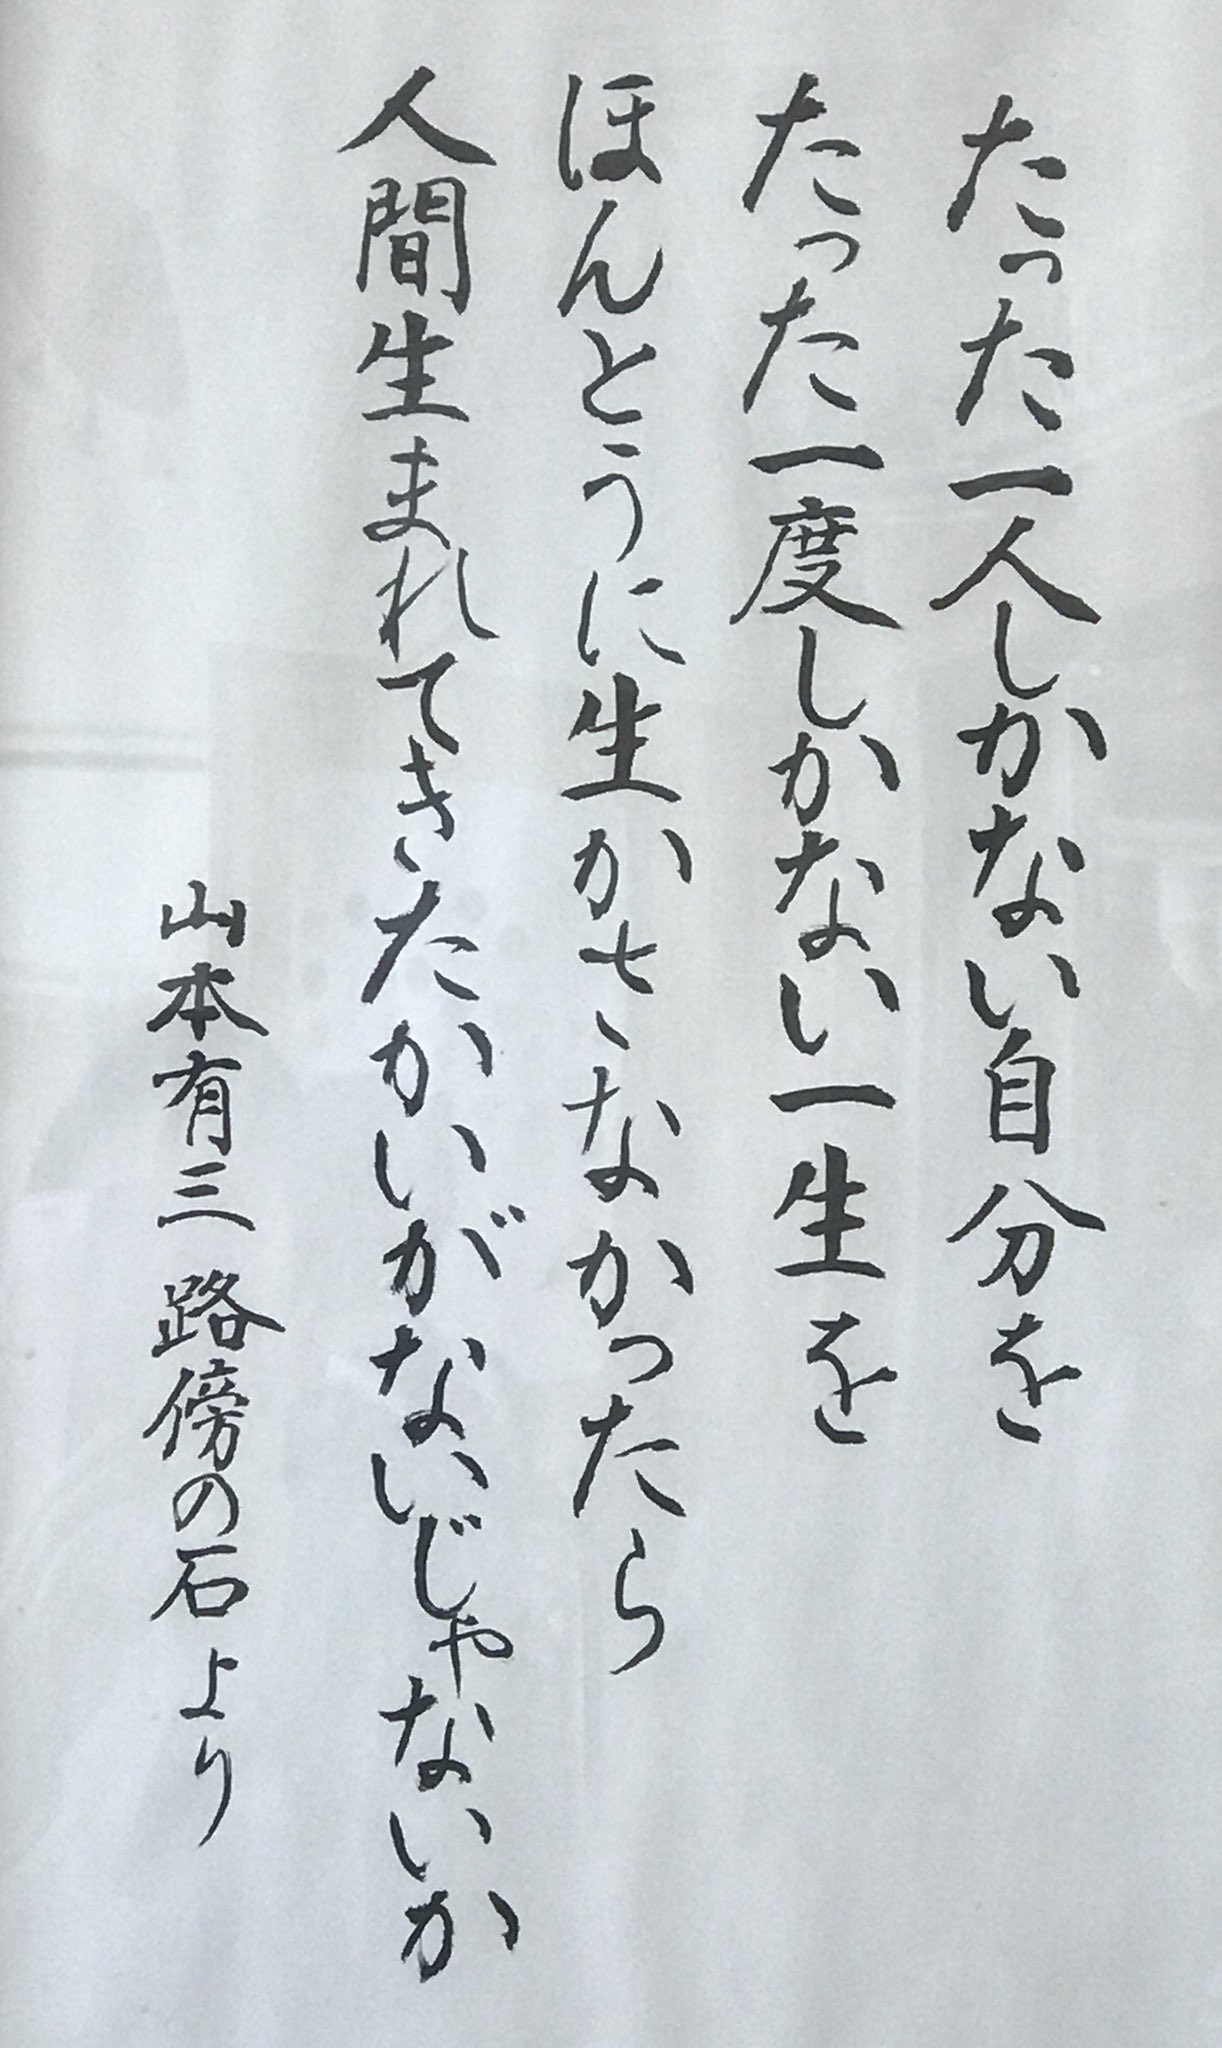 たった一人しかない自分を
たった一度しかない一生を
ほんとうに生かさなかったら
人間生まれてきたかいがないじゃないか
山本有三 路傍の石より